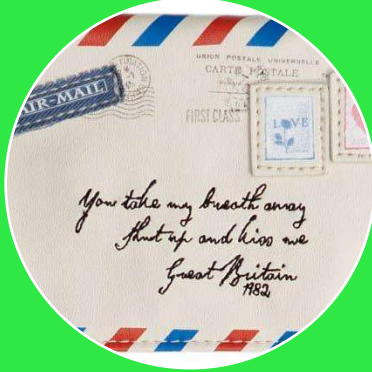 UNION POSTALE UNIVERSELLE
CARTE POSTALE
AIR-MAIL
FIRST CLASS
LOVE
You take my breath away
Shut up and kiss me
Great Britain
1982